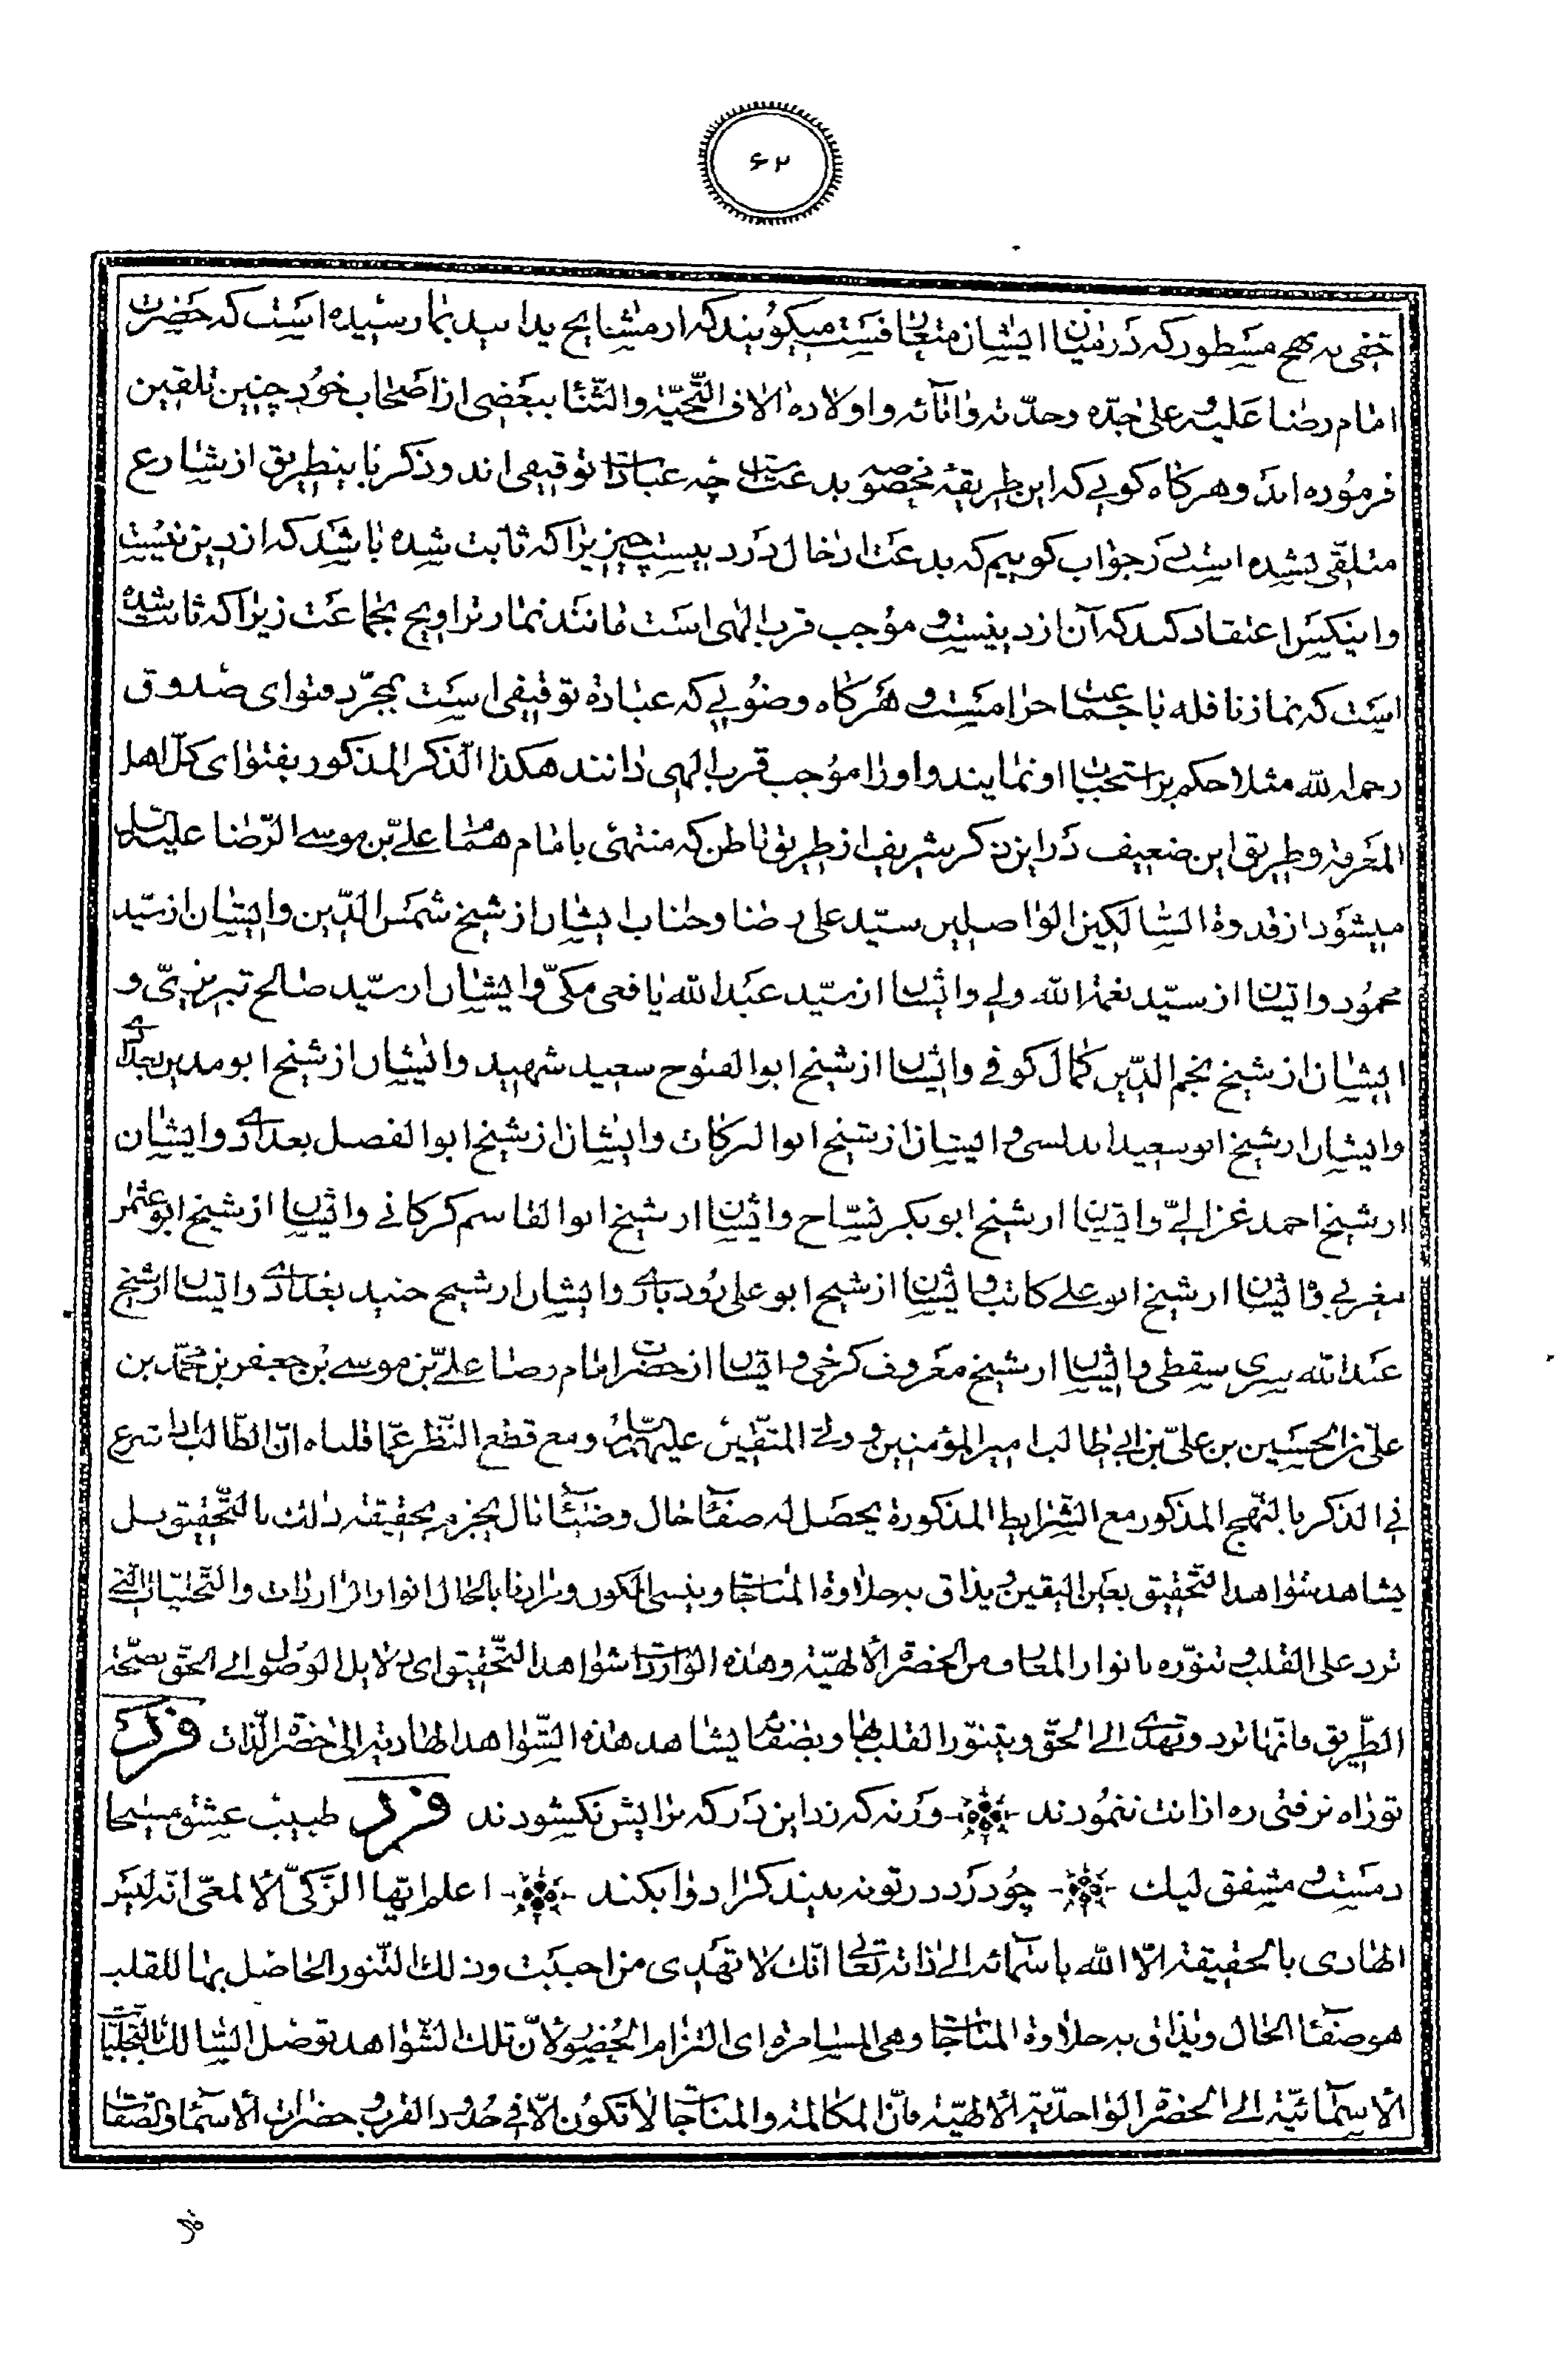 ۶۲
خفی به نهج مسطور که در میان ایشان متعارفست میگویند که از مشایخ یدا بید بما رسیده است که حضرت
امام رضا علیه و علی جده و جدته و اٰبائه و اولاده الاف التّحیّة والثّناء ببعضی از اصحاب خود چنین تلقین
فرموده اند و هرکاه کویی که این طریقهٔ مخصوصه بدعت است چه عبادات توقیفی اند و ذکر باینطریق از شارع
متلقّی نشده است در جواب کوییم که بدعت ادخال در دینست چیزیرا که ثابت شده باشد که از دین نیست
و اینکس اعتقاد کند که آن از دینست و موجب قرب الهی است مانند نماز تراویح بجماعت زیرا که ثابت شده
است که نماز نافله با جماعت حرامست و هرکاه وضویی که عبادة توقیفی است بمجرّد فتوای صدوق
رحمه الله مثلا حکم بر استحباب او نمایند و او را موجب قرب الهی دانند هکذا الذّکر المذکور بفتوای کلّ اهل
المعرفة و طریق این ضعیف در این ذکر شریف از طریق باطن که منتهی بامام همام علیّ بن موسی الرّضا علیه السلام
میشود از قدوة السّالکین الواصلین سیّد علی رضا و جناب ایشان از شیخ شمس الدّین و ایشان از سیّد
محمود و ایشان از سیّد نعمة الله ولی و ایشان از سیّد عبدالله یافعی مکّی و ایشان از سیّد صالح تبریزیّ و
ایشان از شیخ نجم الدّین کمال کوفی و ایشان از شیخ ابوالفتوح سعید شهید و ایشان از شیخ ابو مدین بغدادی
و ایشان از شیخ ابو سعید اندلسی و ایشان از شیخ ابوالبرکات و ایشان از شیخ ابوالفضل بغدادی و ایشان
از شیخ احمد غزالیّ و ایشان از شیخ ابوبکر نسّاج و ایشان از شیخ ابوالقاسم کرکانی و ایشان از شیخ ابو عثمان
مغربی و ایشان از شیخ ابو علی کاتب و ایشان از شیخ ابو علی رودباری و ایشان از شیخ جنید بغدادی و ایشان از شیخ
عبدالله سری سقطی و ایشان از شیخ معروف کرخی و ایشان از حضرت امام رضا علیّ بن موسی بن جعفر بن محمّد بن
علیّ بن الحسین بن علیّ بن ابی طالب امیرالمؤمنین و ولیّ المتّقین علیهم السّلام و مع قطع النّظر عمّا قلناه انّ الطّالب اذا شرع
فی الذکر بالنّهج المذکور مع الشّرایط المذکورة یحصل له صفاء حال و ضیاء بال یجزم بحقیقته ذلک بالتّحقیق بل
یشاهد شواهد التّحقیق بعین الیقین و یذاق به حلاوة المناجات و ینسی الکون و انوار الواردات و التّجلیّات الّتی
ترد علی القلب و تنوّره بانوار المعارف من الحضرة الالهیّة و هذه الواردات شواهد التّحقیق ای دلایل الوصول الی الحق بصحّة
الطّریق فانّها ترد و تهدی الی الحقّ و یتنوّر القلب بها و بضیائها یشاهد هذه الشّواهد الهادیة الی حضرة الذّات فرد
تو راه نرفتی ره ازانت ننمودند ورنه که زد این در که برایش نکشودند فرد طبیب عشق مسیحا
دمست و مشفق لیک چو درد در تو نه بیند کرا دوا بکند اعلم ایّها الزّکیّ الالمعیّ انّه لیس
الهادی بالحقیقة الّا الله باسمائه الی ذاته تعالی انّک لا تهدی من احببت و ذلک التّنور الحاصل بها للقلب
هو صفاء الحال و یذاق به حلاوة المناجات و هی المسامرة ای التزام الحضور لانّ تلک الشّواهد توصل السّالک بالتجلیّات
الاسمائیّة الی الحضرة الواحدیّة الالهیّة فانّ المکالمة و المناجات لا تکون الّا فی حدود القرب و حضرات الاسماء و الصّفات